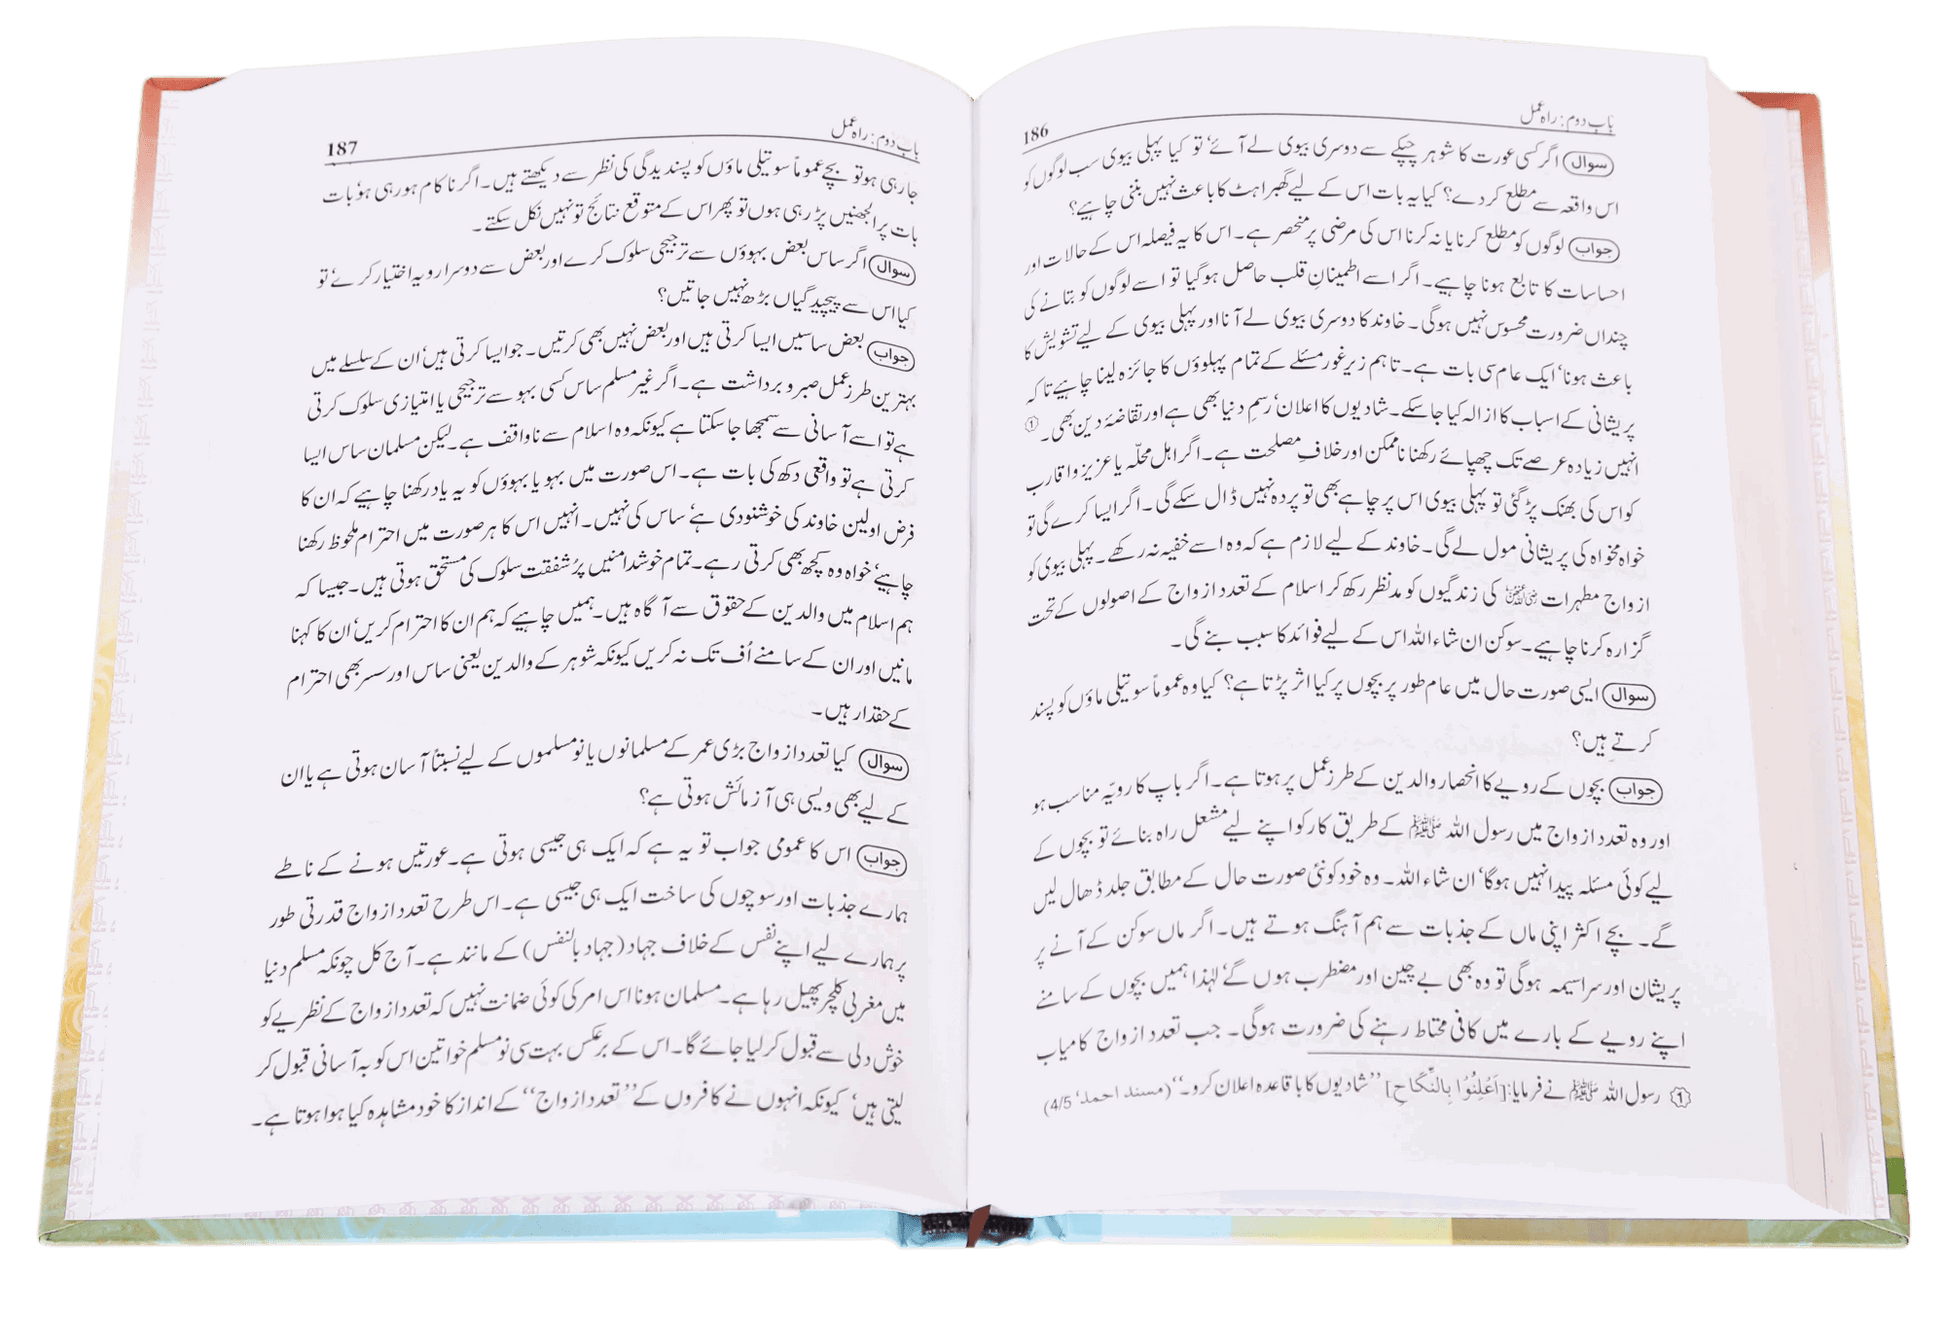 باب دوم: راہ عمل
186
سوال اگر کسی عورت کا شوہر چپکے سے دوسری بیوی لے آئے‘ تو کیا پہلی بیوی سب لوگوں کو
اس واقعہ سے مطلع کر دے؟ کیا یہ بات اس کے لیے گھبراہٹ کا باعث نہیں بننی چاہیے؟
جواب لوگوں کو مطلع کرنا یا نہ کرنا اس کی مرضی پر منحصر ہے۔ اس کا یہ فیصلہ اس کے حالات اور
احساسات کا تابع ہونا چاہیے۔ اگر اسے اطمینانِ قلب حاصل ہو گیا تو اسے لوگوں کو بتانے کی
چنداں ضرورت محسوس نہیں ہوگی۔ خاوند کا دوسری بیوی لے آنا اور پہلی بیوی کے لیے تشویش کا
باعث ہونا‘ ایک عام سی بات ہے۔ تاہم زیر غور مسئلے کے تمام پہلوؤں کا جائزہ لینا چاہیے تاکہ
پریشانی کے اسباب کا ازالہ کیا جا سکے۔ شادیوں کا اعلان‘ رسمِ دنیا بھی ہے اور تقاضۂ دین بھی۔ ①
انہیں زیادہ عرصے تک چھپائے رکھنا ناممکن اور خلافِ مصلحت ہے۔ اگر اہل محلّہ یا عزیز و اقارب
کو اس کی بھنک پڑ گئی تو پہلی بیوی اس پر چاہے بھی تو پردہ نہیں ڈال سکے گی۔ اگر ایسا کرے گی تو
خواہ مخواہ کی پریشانی مول لے گی۔ خاوند کے لیے لازم ہے کہ وہ اسے خفیہ نہ رکھے۔ پہلی بیوی کو
ازواج مطہرات رضی اللہ عنہن کی زندگیوں کو مدنظر رکھ کر اسلام کے تعدد ازواج کے اصولوں کے تحت
گزارہ کرنا چاہیے۔ سوکن ان شاء اللہ اس کے لیے فوائد کا سبب بنے گی۔
سوال ایسی صورت حال میں عام طور پر بچوں پر کیا اثر پڑتا ہے؟ کیا وہ عموماً سوتیلی ماؤں کو پسند
کرتے ہیں؟
جواب بچوں کے رویے کا انحصار والدین کے طرز عمل پر ہوتا ہے۔ اگر باپ کا رویّہ مناسب ہو
اور وہ تعدد ازواج میں رسول اللہ ﷺ کے طریق کار کو اپنے لیے مشعل راہ بنائے تو بچوں کے
لیے کوئی مسئلہ پیدا نہیں ہوگا‘ ان شاء اللہ۔ وہ خود کو نئی صورت حال کے مطابق جلد ڈھال لیں
گے۔ بچے اکثر اپنی ماں کے جذبات سے ہم آہنگ ہوتے ہیں۔ اگر ماں سوکن کے آنے پر
پریشان اور سراسیمہ ہوگی تو وہ بھی بے چین اور مضطرب ہوں گے‘ لہٰذا ہمیں بچوں کے سامنے
اپنے رویے کے بارے میں کافی محتاط رہنے کی ضرورت ہوگی۔ جب تعدد ازواج کامیاب
① رسول اللہ ﷺ نے فرمایا: [اَعْلِنُوْا بِالنِّكَاحِ] ’’شادیوں کا باقاعدہ اعلان کرو۔‘‘ (مسند احمد‘ 4/5)
باب دوم: راہ عمل
187
جا رہی ہو تو بچے عموماً سوتیلی ماؤں کو پسندیدگی کی نظر سے دیکھتے ہیں۔ اگر ناکام ہو رہی ہو‘ بات
بات پر الجھنیں پڑ رہی ہوں تو پھر اس کے متوقع نتائج تو نہیں نکل سکتے۔
سوال اگر ساس بعض بہوؤں سے ترجیحی سلوک کرے اور بعض سے دوسرا رویہ اختیار کرے‘ تو
کیا اس سے پیچیدگیاں بڑھ نہیں جاتیں؟
جواب بعض ساسیں ایسا کرتی ہیں اور بعض نہیں بھی کرتیں۔ جو ایسا کرتی ہیں‘ ان کے سلسلے میں
بہترین طرز عمل صبر و برداشت ہے۔ اگر غیر مسلم ساس کسی بہو سے ترجیحی یا امتیازی سلوک کرتی
ہے تو اسے آسانی سے سمجھا جا سکتا ہے کیونکہ وہ اسلام سے ناواقف ہے۔ لیکن مسلمان ساس ایسا
کرتی ہے تو واقعی دکھ کی بات ہے۔ اس صورت میں بہو یا بہوؤں کو یہ یاد رکھنا چاہیے کہ ان کا
فرض اولین خاوند کی خوشنودی ہے‘ ساس کی نہیں۔ انہیں اس کا ہر صورت میں احترام ملحوظ رکھنا
چاہیے‘ خواہ وہ کچھ بھی کرتی رہے۔ تمام خوشدامنیں پرُ شفقت سلوک کی مستحق ہوتی ہیں۔ جیسا کہ
ہم اسلام میں والدین کے حقوق سے آگاہ ہیں۔ ہمیں چاہیے کہ ہم ان کا احترام کریں‘ ان کا کہنا
مانیں اور ان کے سامنے اُف تک نہ کریں کیونکہ شوہر کے والدین یعنی ساس اور سسر بھی احترام
کے حقدار ہیں۔
سوال کیا تعدد ازواج بڑی عمر کے مسلمانوں یا نو مسلموں کے لیے نسبتاً آسان ہوتی ہے یا ان
کے لیے بھی ویسی ہی آزمائش ہوتی ہے؟
جواب اس کا عمومی جواب تو یہ ہے کہ ایک ہی جیسی ہوتی ہے۔ عورتیں ہونے کے ناطے
ہمارے جذبات اور سوچوں کی ساخت ایک ہی جیسی ہے۔ اس طرح تعدد ازواج قدرتی طور
پر ہمارے لیے اپنے نفس کے خلاف جہاد (جہاد بالنفس) کے مانند ہے۔ آج کل چونکہ مسلم دنیا
میں مغربی کلچر پھیل رہا ہے۔ مسلمان ہونا اس امر کی کوئی ضمانت نہیں کہ تعدد ازواج کے نظریے کو
خوش دلی سے قبول کر لیا جائے گا۔ اس کے برعکس بہت سی نو مسلم خواتین اس کو بہ آسانی قبول کر
لیتی ہیں‘ کیونکہ انہوں نے کافروں کے ’’تعدد ازواج‘‘ کے انداز کا خود مشاہدہ کیا ہوا ہوتا ہے۔